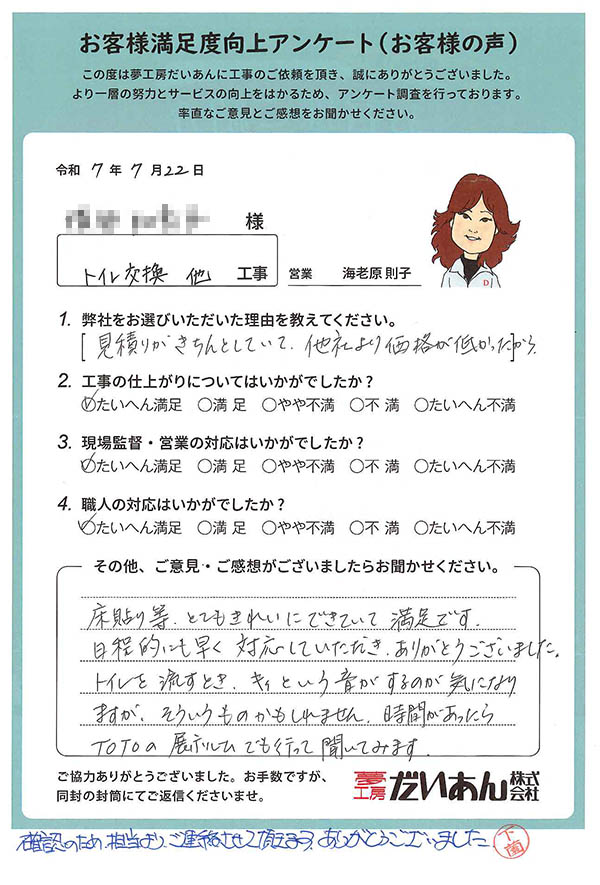 お客様満足度向上アンケート（お客様の声）
この度は夢工房だいあんに工事のご依頼を頂き、誠にありがとうございました。
より一層の努力とサービスの向上をはかるため、アンケート調査を行っております。
率直なご意見とご感想をお聞かせください。
令和 7 年 7 月 22 日
様
トイレ交換 他 工事 営業 海老原 則子
D
1. 弊社をお選びいただいた理由を教えてください。
[見積りがきちんとしていて、他社より価格が低かった]から
2. 工事の仕上がりについてはいかがでしたか？
○たいへん満足 ○満 足 ○やや不満 ○不 満 ○たいへん不満
3. 現場監督・営業の対応はいかがでしたか？
○たいへん満足 ○満 足 ○やや不満 ○不 満 ○たいへん不満
4. 職人の対応はいかがでしたか？
○たいへん満足 ○満 足 ○やや不満 ○不 満 ○たいへん不満
その他、ご意見・ご感想がございましたらお聞かせください。
床貼り等、とてもきれいにできていて 満足です。
日程的にも早く 対応していただき、ありがとうございました。
トイレを 流すとき、キィという音がするのが 気になり
ますが、そういうものかもしれません。時間があったら
TOTOの 展示ルームでも行って 聞いてみます。
ご協力ありがとうございました。お手数ですが、
同封の封筒にてご返信くださいませ。
夢工房 だいあん 株式会社
確認のため、担当より、ご連絡させて頂きます。ありがとうございました。 下薗